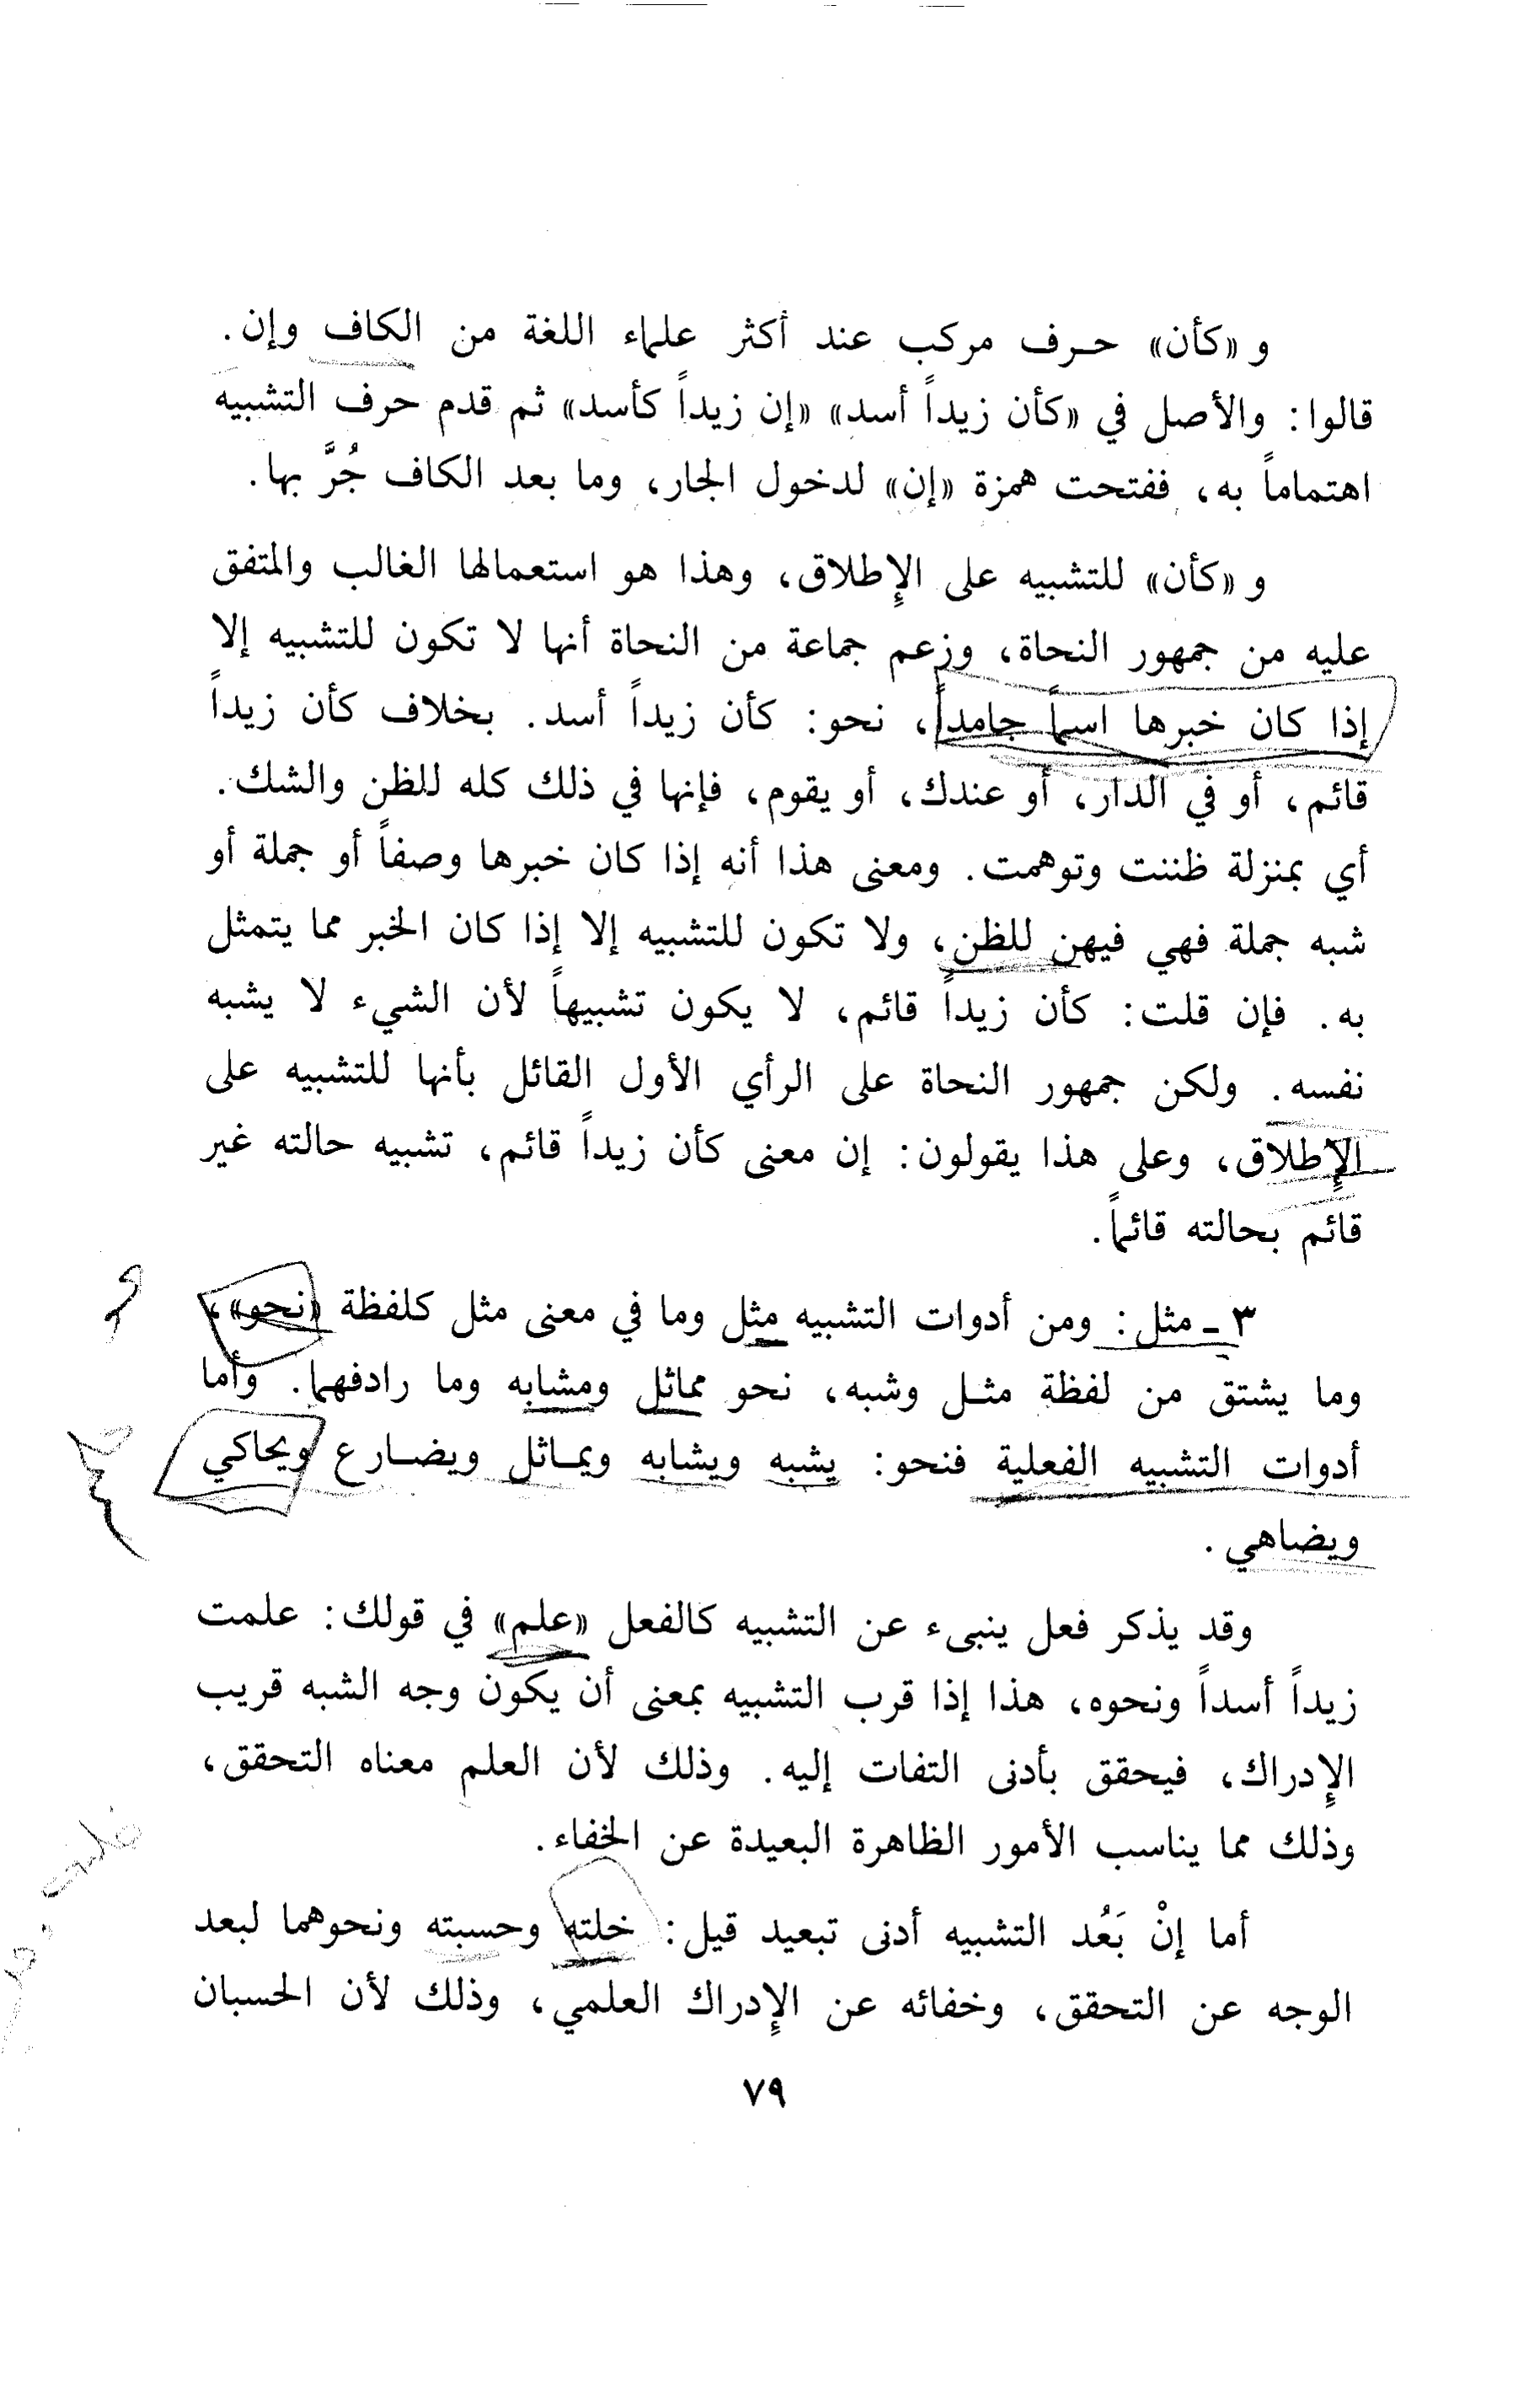 و «كأن» حرف مركب عند أكثر علماء اللغة من الكاف وإن.
قالوا: والأصل في «كأن زيداً أسد» «إن زيداً كأسد» ثم قدم حرف التشبيه
اهتماماً به، ففتحت همزة «إن» لدخول الجار، وما بعد الكاف جُرَّ بها.
و «كأن» للتشبيه على الإطلاق، وهذا هو استعمالها الغالب والمتفق
عليه من جمهور النحاة، وزعم جماعة من النحاة أنها لا تكون للتشبيه إلا
إذا كان خبرها اسماً جامداً، نحو: كأن زيداً أسد. بخلاف كأن زيداً
قائم، أو في الدار، أو عندك، أو يقوم، فإنها في ذلك كله للظن والشك.
أي بمنزلة ظننت وتوهمت. ومعنى هذا أنه إذا كان خبرها وصفاً أو جملة أو
شبه جملة فهي فيهن للظن، ولا تكون للتشبيه إلا إذا كان الخبر مما يتمثل
به. فإن قلت: كأن زيداً قائم، لا يكون تشبيهاً لأن الشيء لا يشبه
نفسه. ولكن جمهور النحاة على الرأي الأول القائل بأنها للتشبيه على
الإطلاق، وعلى هذا يقولون: إن معنى كأن زيداً قائم، تشبيه حالته غير
قائم بحالته قائماً.
٣ ـ مثل: ومن أدوات التشبيه مثل وما في معنى مثل كلفظة «نحو»،
وما يشتق من لفظة مثل وشبه، نحو مماثل ومشابه وما رادفهما. وأما
أدوات التشبيه الفعلية فنحو: يشبه ويشابه ويماثل ويضارع ويحاكي
ويضاهي.
وقد يذكر فعل ينبىء عن التشبيه كالفعل «علم» في قولك: علمت
زيداً أسداً ونحوه، هذا إذا قرب التشبيه بمعنى أن يكون وجه الشبه قريب
الإدراك، فيحقق بأدنى التفات إليه. وذلك لأن العلم معناه التحقق،
وذلك مما يناسب الأمور الظاهرة البعيدة عن الخفاء.
أما إنْ بَعُد التشبيه أدنى تبعيد قيل: خلته وحسبته ونحوهما لبعد
الوجه عن التحقق، وخفائه عن الإدراك العلمي، وذلك لأن الحسبان
٧٩